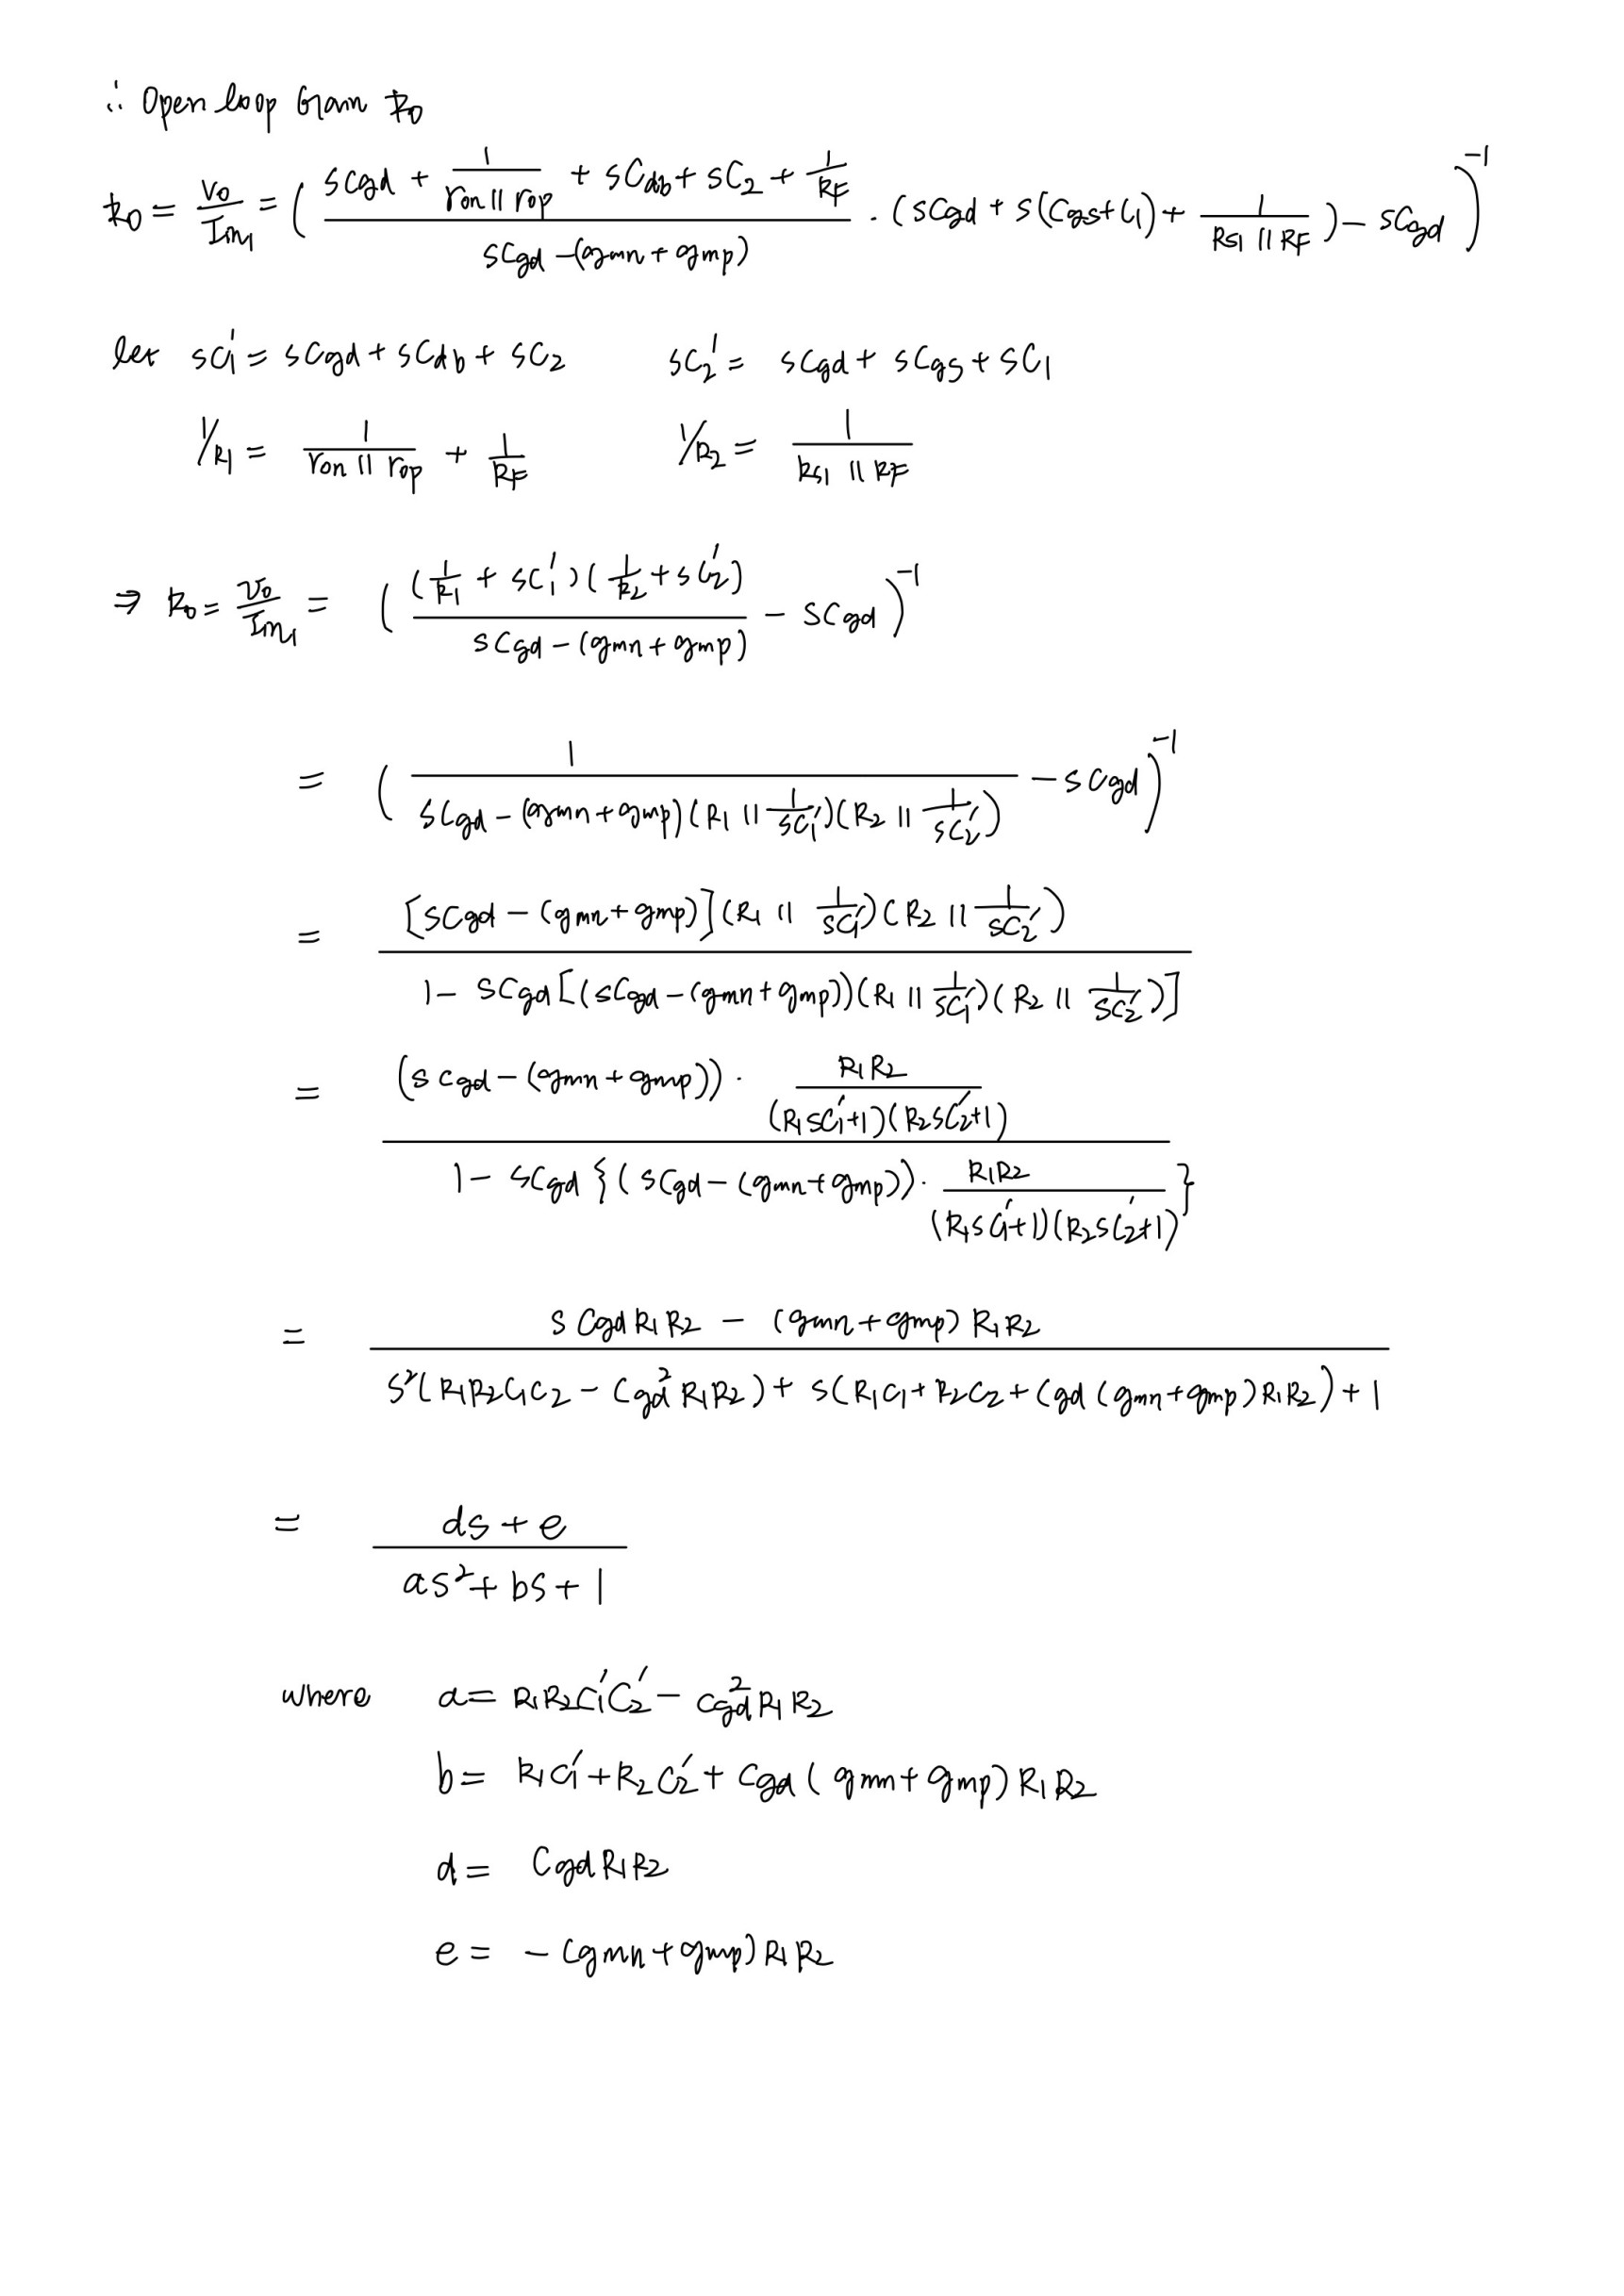 ∴ Open loop Gain R₀
R₀ = V₀/Iin₁ = ( (sCgd + 1/(ron || rop) + sCdb + sC₂ + 1/RF) / (sCgd − (gmn + gmp)) · (sCgd + s(Cgs + C₁) + 1/(Rs₁ || RF)) − sCgd )⁻¹
let sC₁' = sCgd + sCdb + sC₂    sC₂' = sCgd + sCgs + sC₁
1/R₁ = 1/(ron || rop) + 1/RF    1/R₂ = 1/(Rs₁ || RF)
⇒ R₀ = V₀/Iin₁ = ( (1/R₁ + sC₁')(1/R₂ + sC₂') / (sCgd − (gmn + gmp)) − sCgd )⁻¹
= ( 1 / (sCgd − (gmn + gmp)(R₁ || 1/sC₁')(R₂ || 1/sC₂')) − sCgd )⁻¹
= [sCgd − (gmn + gmp)](R₁ || 1/sC₁')(R₂ || 1/sC₂') / (1 − sCgd[(sCgd − (gmn + gmp))(R₁ || 1/sC₁')(R₂ || 1/sC₂')])
= (sCgd − (gmn + gmp)) · R₁R₂/((R₁sC₁' + 1)(R₂sC₂' + 1)) / (1 − sCgd{(sCgd − (gmn + gmp)) · R₁R₂/((R₁sC₁' + 1)(R₂sC₂' + 1))})
= (sCgdR₁R₂ − (gmn + gmp)R₁R₂) / (s²(R₁R₂C₁C₂ − Cgd²R₁R₂) + s(R₁C₁ + R₂C₂ + Cgd(gmn + gmp)R₁R₂) + 1)
= (ds + e) / (as² + bs + 1)
where a = R₁R₂C₁'C₂' − Cgd²R₁R₂
b = R₁C₁' + R₂C₂' + Cgd(gmn + gmp)R₁R₂
d = CgdR₁R₂
e = −(gmn + gmp)R₁R₂